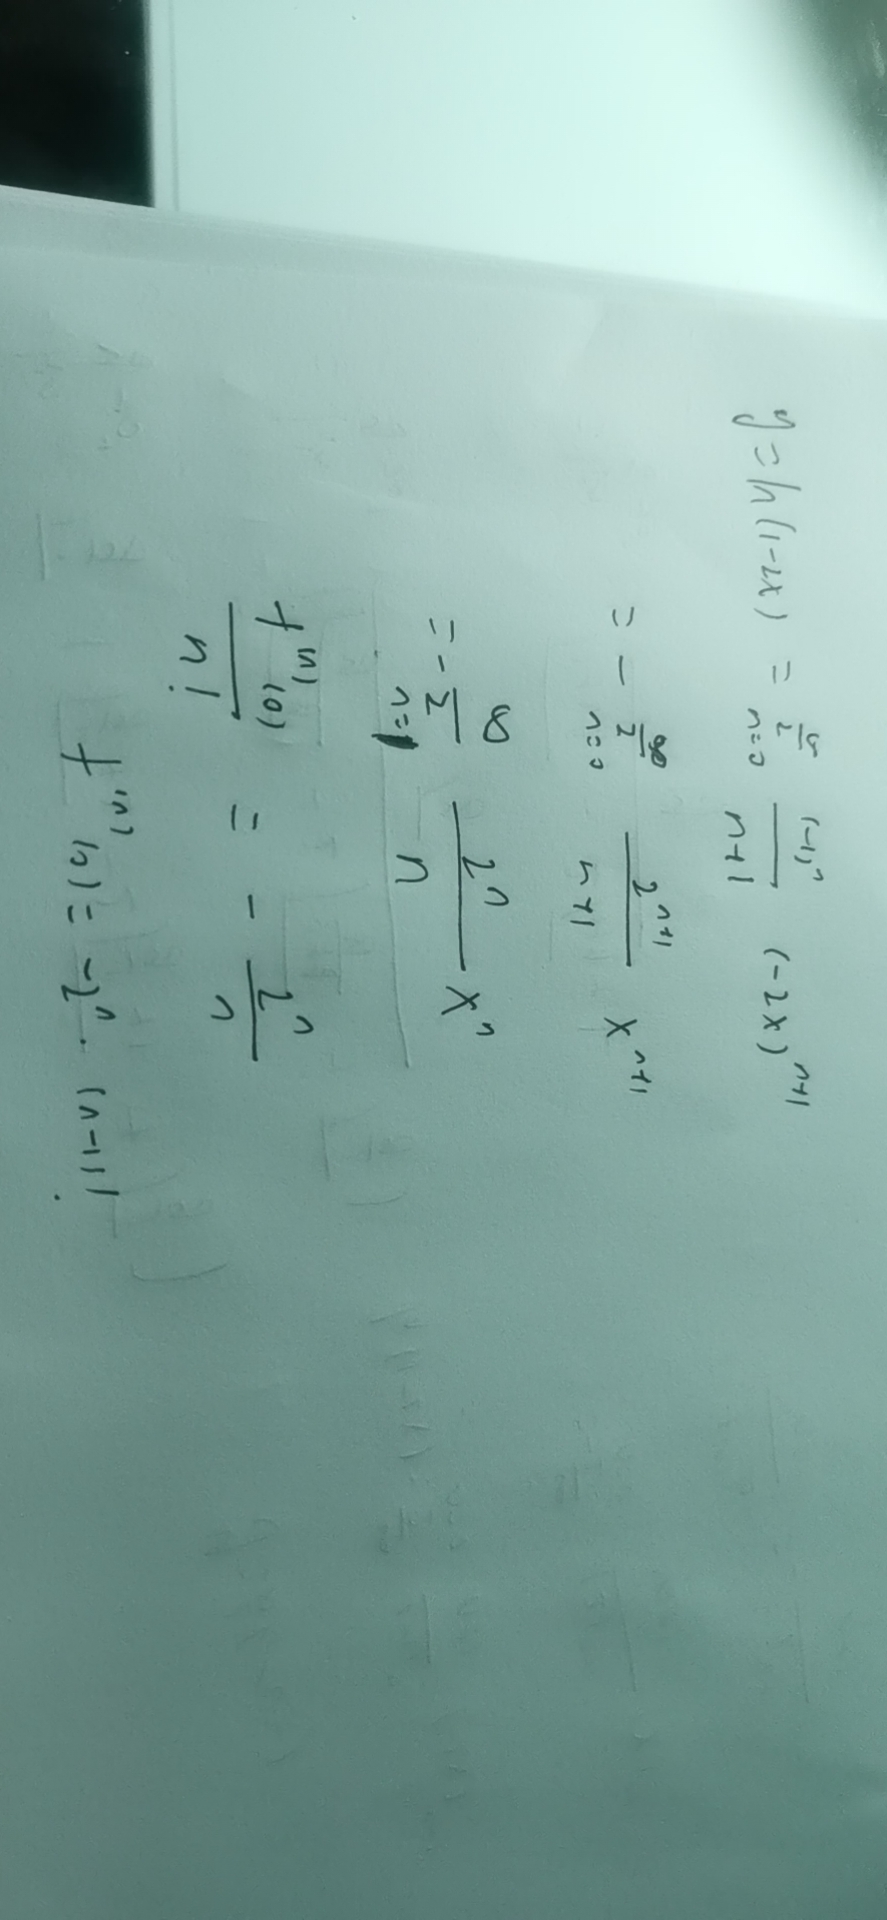 y = ln(1-2x) = ∑_{n=0}^{∞} (-1)^n/(n+1) (-2x)^{n+1}
= - ∑_{n=0}^{∞} 2^{n+1}/(n+1) x^{n+1}
= - ∑_{n=1}^{∞} 2^n/n x^n
f^{(n)}(0)/n! = - 2^n/n
f^{(n)}(0) = -2^n · (n-1)!